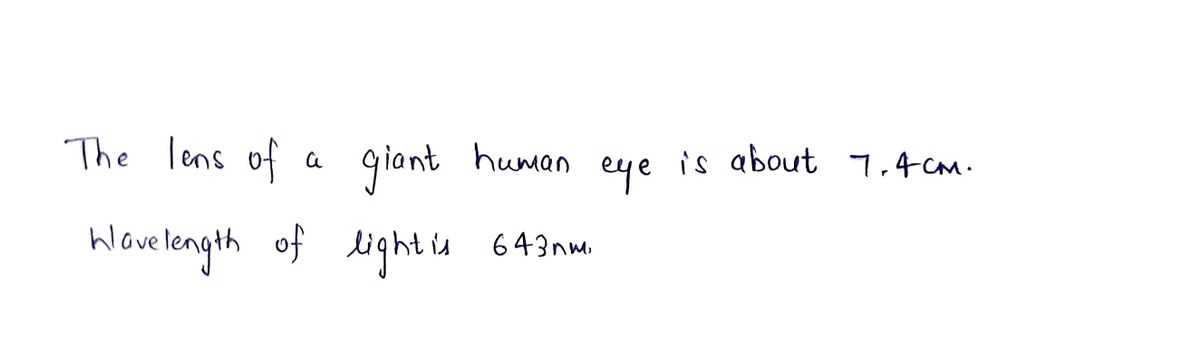 The lens of a giant human eye is about 7.4cm.
Wavelength of light is 643nm.